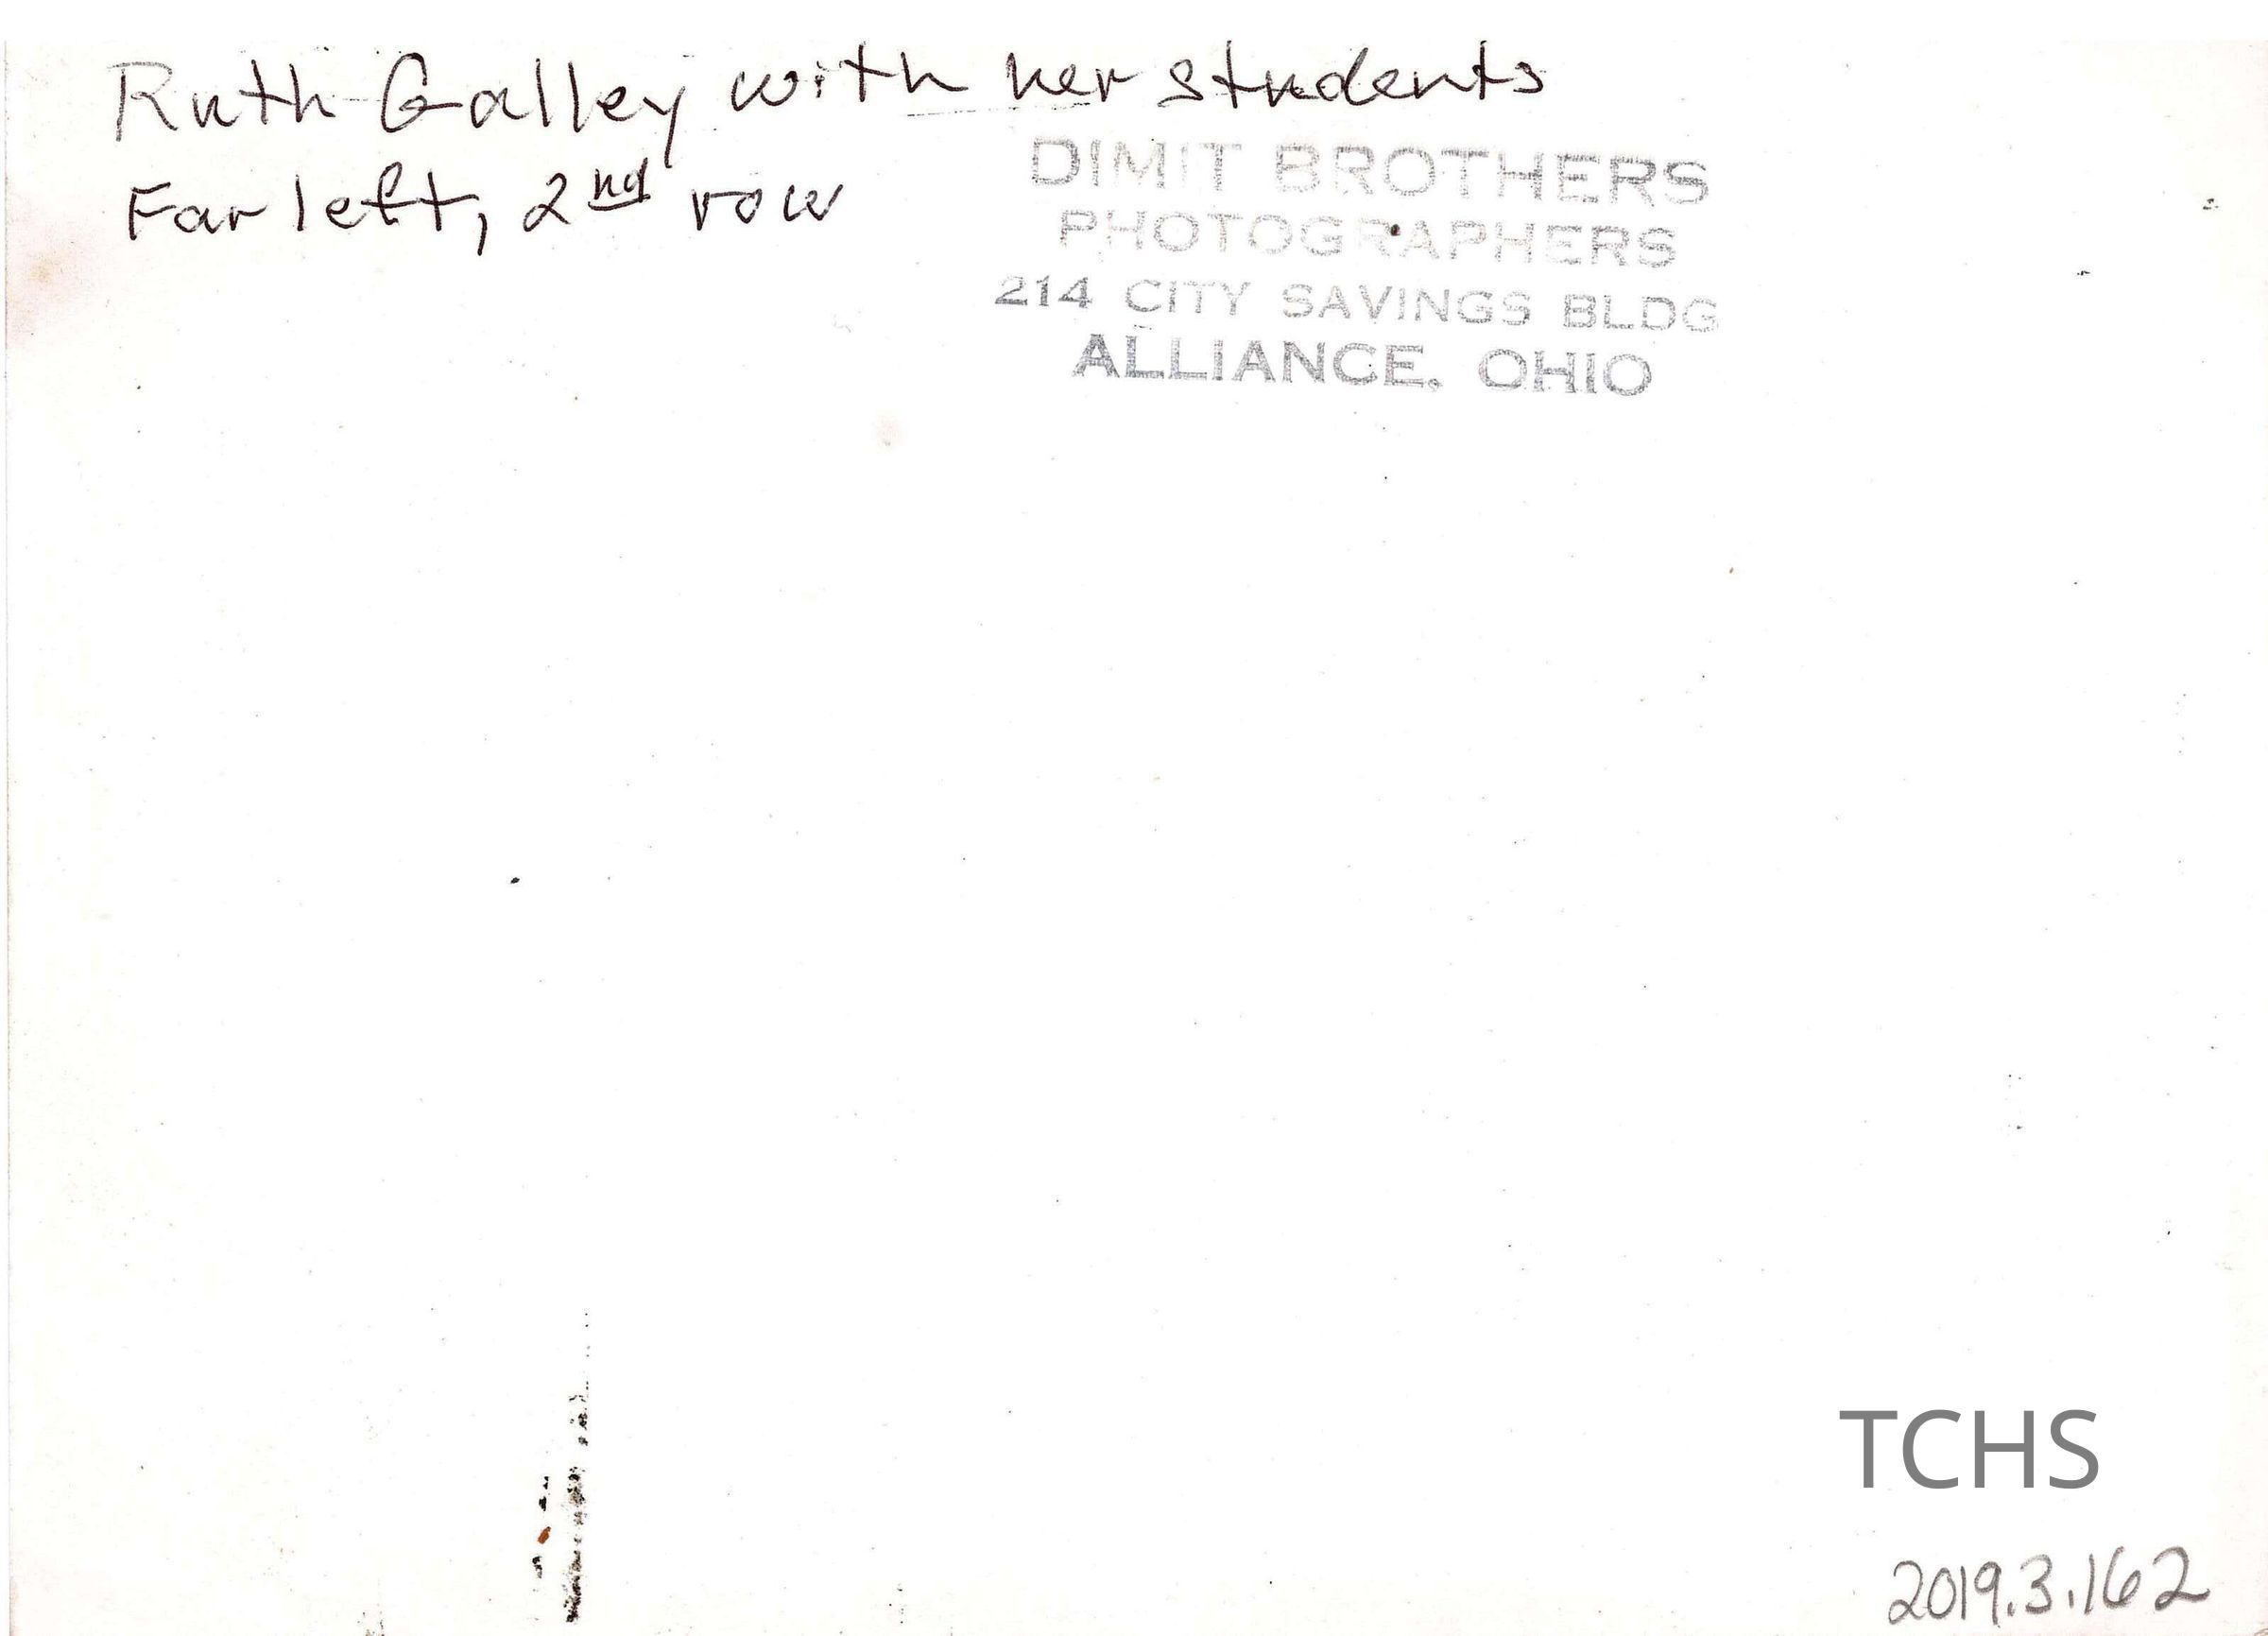 Ruth Galley with her students
Far left, 2nd row
DIMIT BROTHERS
PHOTOGRAPHERS
214 CITY SAVINGS BLDG
ALLIANCE, OHIO
TCHS
2019.3.162